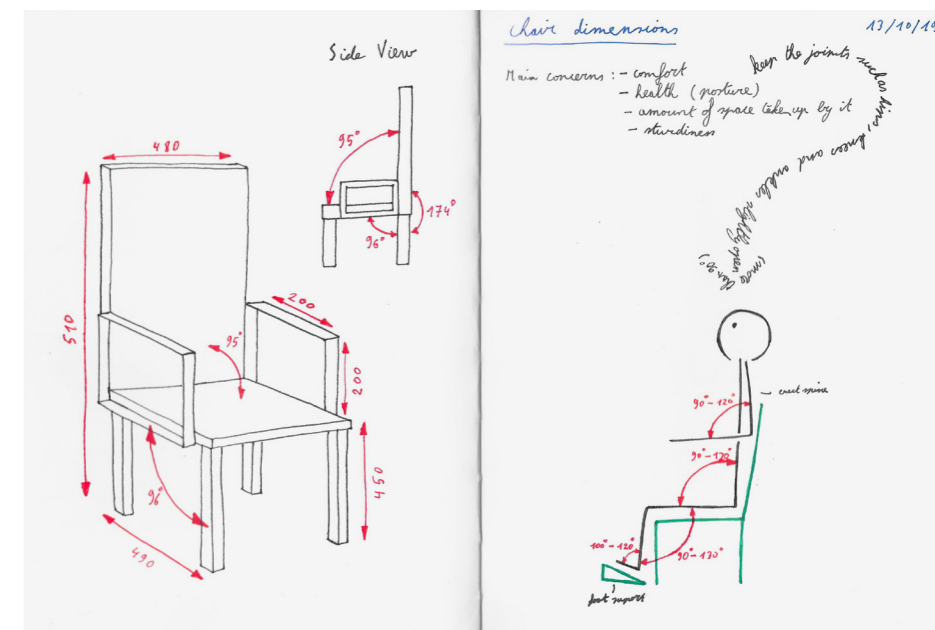 Side View
480
95°
174°
96°
510
200
95°
200
96°
450
490
chair dimensions
13/10/19
Main concerns : - comfort
- health (posture)
- amount of space taken up by it
- sturdiness
keep the joints such as hips, knees and ankles slightly open
(more than 90°)
erect spine
90°-120°
90°-120°
100°-120°
90°-130°
foot support